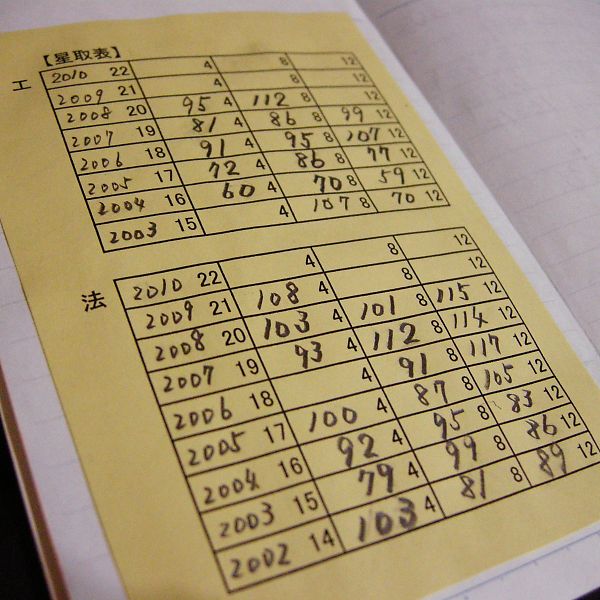 【星取表】
工
2010 22 4 8 12
2009 21 4 8 12
2008 20 95 4 112 8 12
2007 19 81 4 86 8 99 12
2006 18 91 4 95 8 107 12
2005 17 72 4 86 8 77 12
2004 16 60 4 70 8 59 12
2003 15 4 107 8 70 12
法
2010 22 4 8 12
2009 21 108 4 8 12
2008 20 103 4 101 8 115 12
2007 19 93 4 112 8 114 12
2006 18 4 91 8 117 12
2005 17 100 4 87 8 105 12
2004 16 92 4 95 8 83 12
2003 15 79 4 99 8 86 12
2002 14 103 4 81 8 89 12